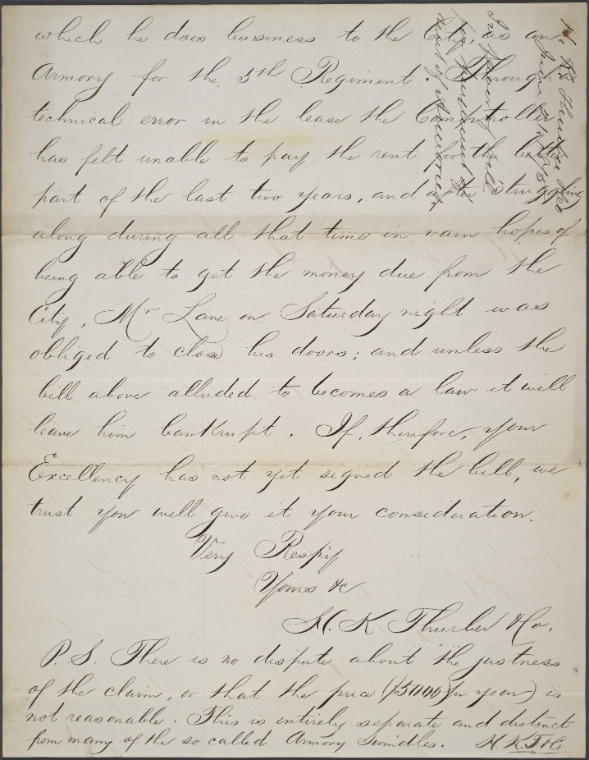 which he does business to the City, as an
Armory for the 5th Regiment. Through
technical error in the lease the Comptroller
has felt unable to pay the rent for the better
part of the last two years, and after struggling
along during all that time in vain hopes of
being able to get the money due from the
City, Mr Lane on Saturday night was
obliged to close his doors; and unless the
bill above alluded to becomes a law it will
leave him bankrupt. If, therefore, your
Excellency has not yet signed the bill, we
trust you will give it your consideration.
Very Respy
Yours &c
H. K Thurber & Co.
P. S. There is no dispute about the justness
of the claim, or that the price ($5000 pr year) is
not reasonable. This is entirely separate and distinct
from many of the so called Armory Swindles. H K T & Co
H. K. Thurber & Co